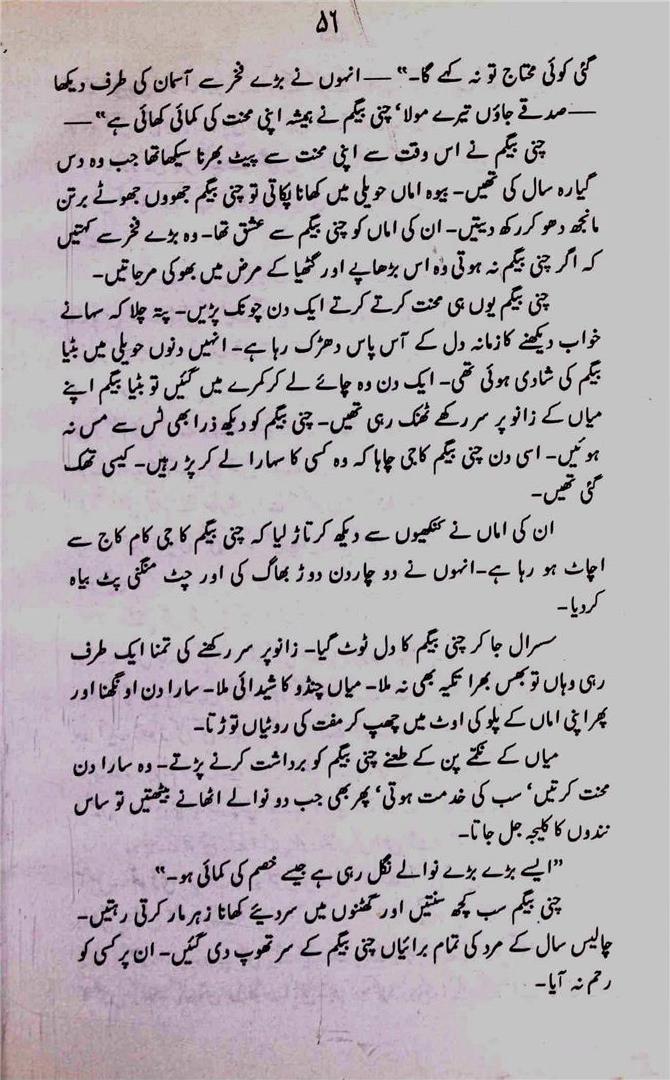 ۵۶
گئی کوئی محتاج تو نہ کہے گا۔" — انہوں نے بڑے فخر سے آسمان کی طرف دیکھا
— صدقے جاؤں تیرے مولا' چنی بیگم نے ہمیشہ اپنی محنت کی کمائی کھائی ہے" —
چنی بیگم نے اس وقت سے اپنی محنت سے پیٹ بھرنا سیکھا تھا جب وہ دس
گیارہ سال کی تھیں۔ بیوہ اماں حویلی میں کھانا پکاتی تو چنی بیگم جھووں جھوٹے برتن
مانجھ دھو کر رکھ دیتیں۔ ان کی اماں کو چنی بیگم سے عشق تھا۔ وہ بڑے فخر سے کہتیں
کہ اگر چنی بیگم نہ ہوتی وہ اس بڑھاپے اور گٹھیا کے مرض میں بھوکی مرجاتیں۔
چنی بیگم یوں ہی محنت کرتے کرتے ایک دن چونک پڑیں۔ پتہ چلا کہ سہانے
خواب دیکھنے کا زمانہ دل کے آس پاس دھڑک رہا ہے۔ انہیں دنوں حویلی میں بٹیا
بیگم کی شادی ہوئی تھی۔ ایک دن وہ چائے لے کر کمرے میں گئیں تو بٹیا بیگم اپنے
میاں کے زانو پر سر رکھے ٹھنک رہی تھیں۔ چنی بیگم کو دیکھ ذرا بھی ٹس سے مس نہ
ہوئیں۔ اسی دن چنی بیگم کا جی چاہا کہ وہ کسی کا سہارا لے کر پڑ رہیں۔ کیسی تھک
گئی تھیں۔
ان کی اماں نے کنکھیوں سے دیکھ کر تاڑ لیا کہ چنی بیگم کا جی کام کاج سے
اچاٹ ہو رہا ہے۔ انہوں نے دو چار دن دوڑ بھاگ کی اور چٹ منگنی پٹ بیاہ
کردیا۔
سسرال جا کر چنی بیگم کا دل ٹوٹ گیا۔ زانو پر سر رکھنے کی تمنا ایک طرف
رہی وہاں تو بھس بھرا تکیہ بھی نہ ملا۔ میاں چنڈو کا شیدائی ملا۔ سارا دن اونگھنا اور
پھر اپنی اماں کے پلو کی اوٹ میں چھپ کر مفت کی روٹیاں توڑتا۔
میاں کے نکتے پن کے طعنے چنی بیگم کو برداشت کرنے پڑتے۔ وہ سارا دن
محنت کرتیں' سب کی خدمت ہوتی' پھر بھی جب دو نوالے اٹھانے بیٹھتیں تو ساس
نندوں کا کلیجہ جل جاتا۔
"ایسے بڑے بڑے نوالے نگل رہی ہے جیسے خصم کی کمائی ہو۔"
چنی بیگم سب کچھ سنتیں اور گھٹنوں میں سر دیئے کھانا زہر مار کرتی رہتیں۔
چالیس سال کے مرد کی تمام برائیاں چنی بیگم کے سر تھوپ دی گئیں۔ ان پر کسی کو
رحم نہ آیا۔